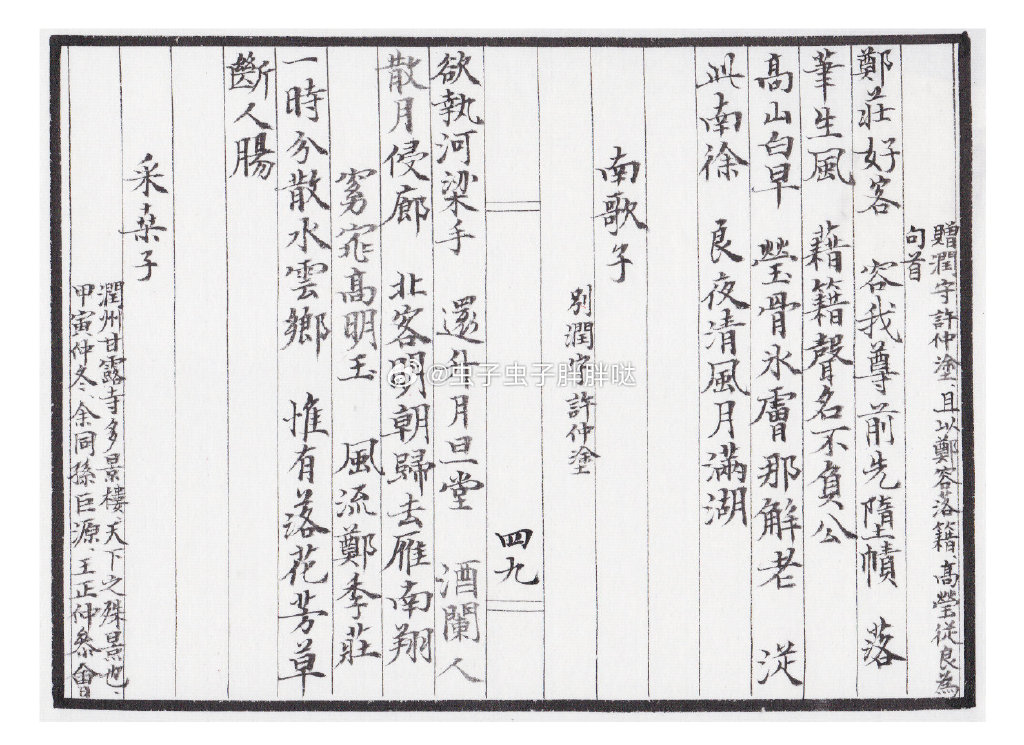 贈潤守許仲塗、且以鄭容落籍、高瑩從良為
句首
鄭莊好客　容我尊前先墮幘　落
筆生風　藉籍聲名不負公
高山白早　瑩骨氷膚那解老　从
此南徐　良夜清風月滿湖
南歌子
別潤守許仲塗
四九
欲執河梁手　還升月旦堂　酒闌人
散月侵廊　北客明朝歸去雁南翔
窈窕高明玉　風流鄭季莊
一時分散水雲鄉　惟有落花芳草
斷人腸
采桒子
潤州甘露寺多景樓、天下之殊景也、
甲寅仲冬、余同孫巨源、王正仲叅會
@虫子虫子胖胖哒